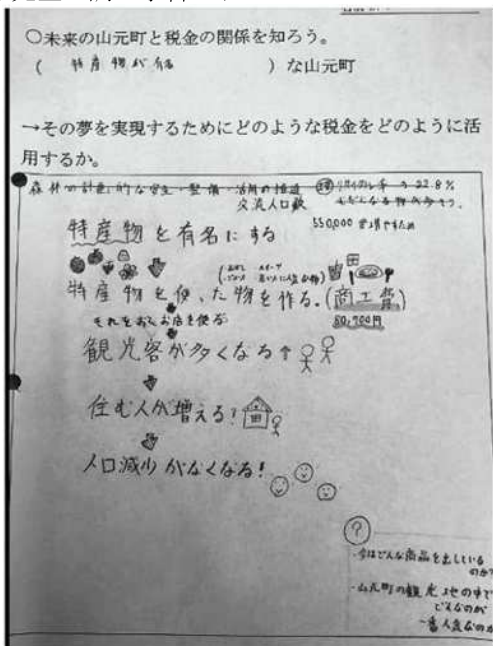 ○未来の山元町と税金の関係を知ろう。
( 特産物が有名 ) な山元町
→その夢を実現するためにどのような税金をどのように活
用するか。
森林の計画的な 整備・活用の推進 22.8%
交流人口数
550,000
特産物を有名にする
特産物を使った物を作る。(商工費)
それをおくお店を使る
80,700円
観光客が多くなる↑
住む人が増える?
人口減少がなくなる!
?
・今はどんな商品を出している
のか?
・山元町の観光地の中で
どこなのが
一番人気なのか